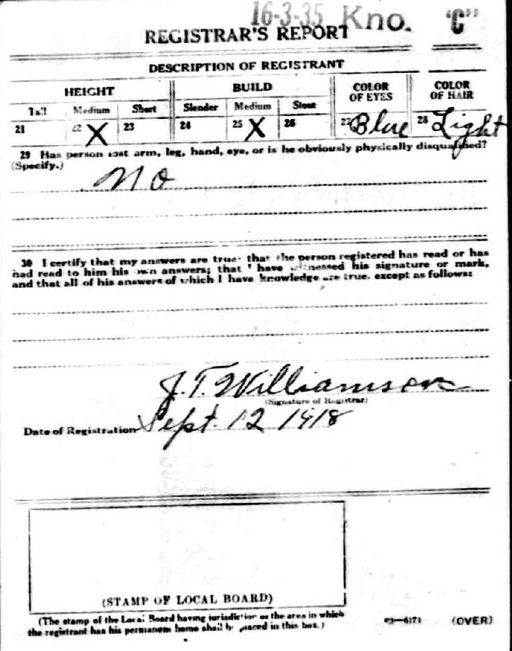 16-3-35 Kno. "C"
REGISTRAR'S REPORT
DESCRIPTION OF REGISTRANT
HEIGHT BUILD COLOR OF EYES COLOR OF HAIR
Tall Medium Short Slender Medium Stout
21 22 X 23 24 25 X 26 27 Blue 28 Light
29 Has person lost arm, leg, hand, eye, or is he obviously physically disqualified?
(Specify.)
No
30 I certify that my answers are true; that the person registered has read or has
had read to him his own answers; that I have witnessed his signature or mark,
and that all of his answers of which I have knowledge are true, except as follows:
J.T. Williamson
(Signature of Registrar)
Date of Registration Sept. 12 1918
(STAMP OF LOCAL BOARD)
(The stamp of the Local Board having jurisdiction of the area in which
the registrant has his permanent home shall be placed in this box.)
03-6171 (OVER)